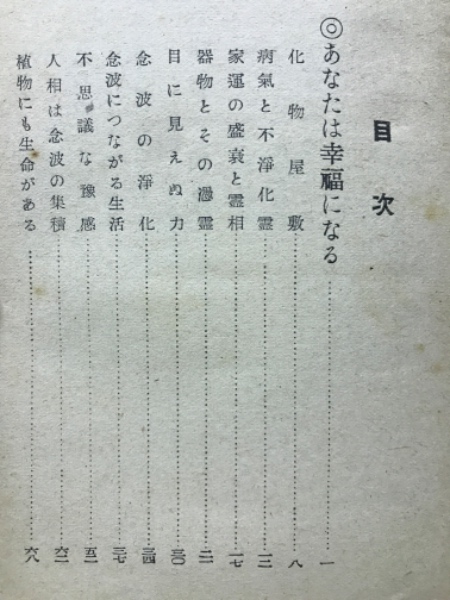 目次
◎あなたは幸福になる……一
化物屋敷……八
病氣と不淨化霊……一三
家運の盛衰と霊相……一七
器物とその憑霊……二二
目に見えぬ力……三〇
念波の淨化……三四
念波につながる生活……三七
不思議な豫感……五二
人相は念波の集積……六二
植物にも生命がある……六八